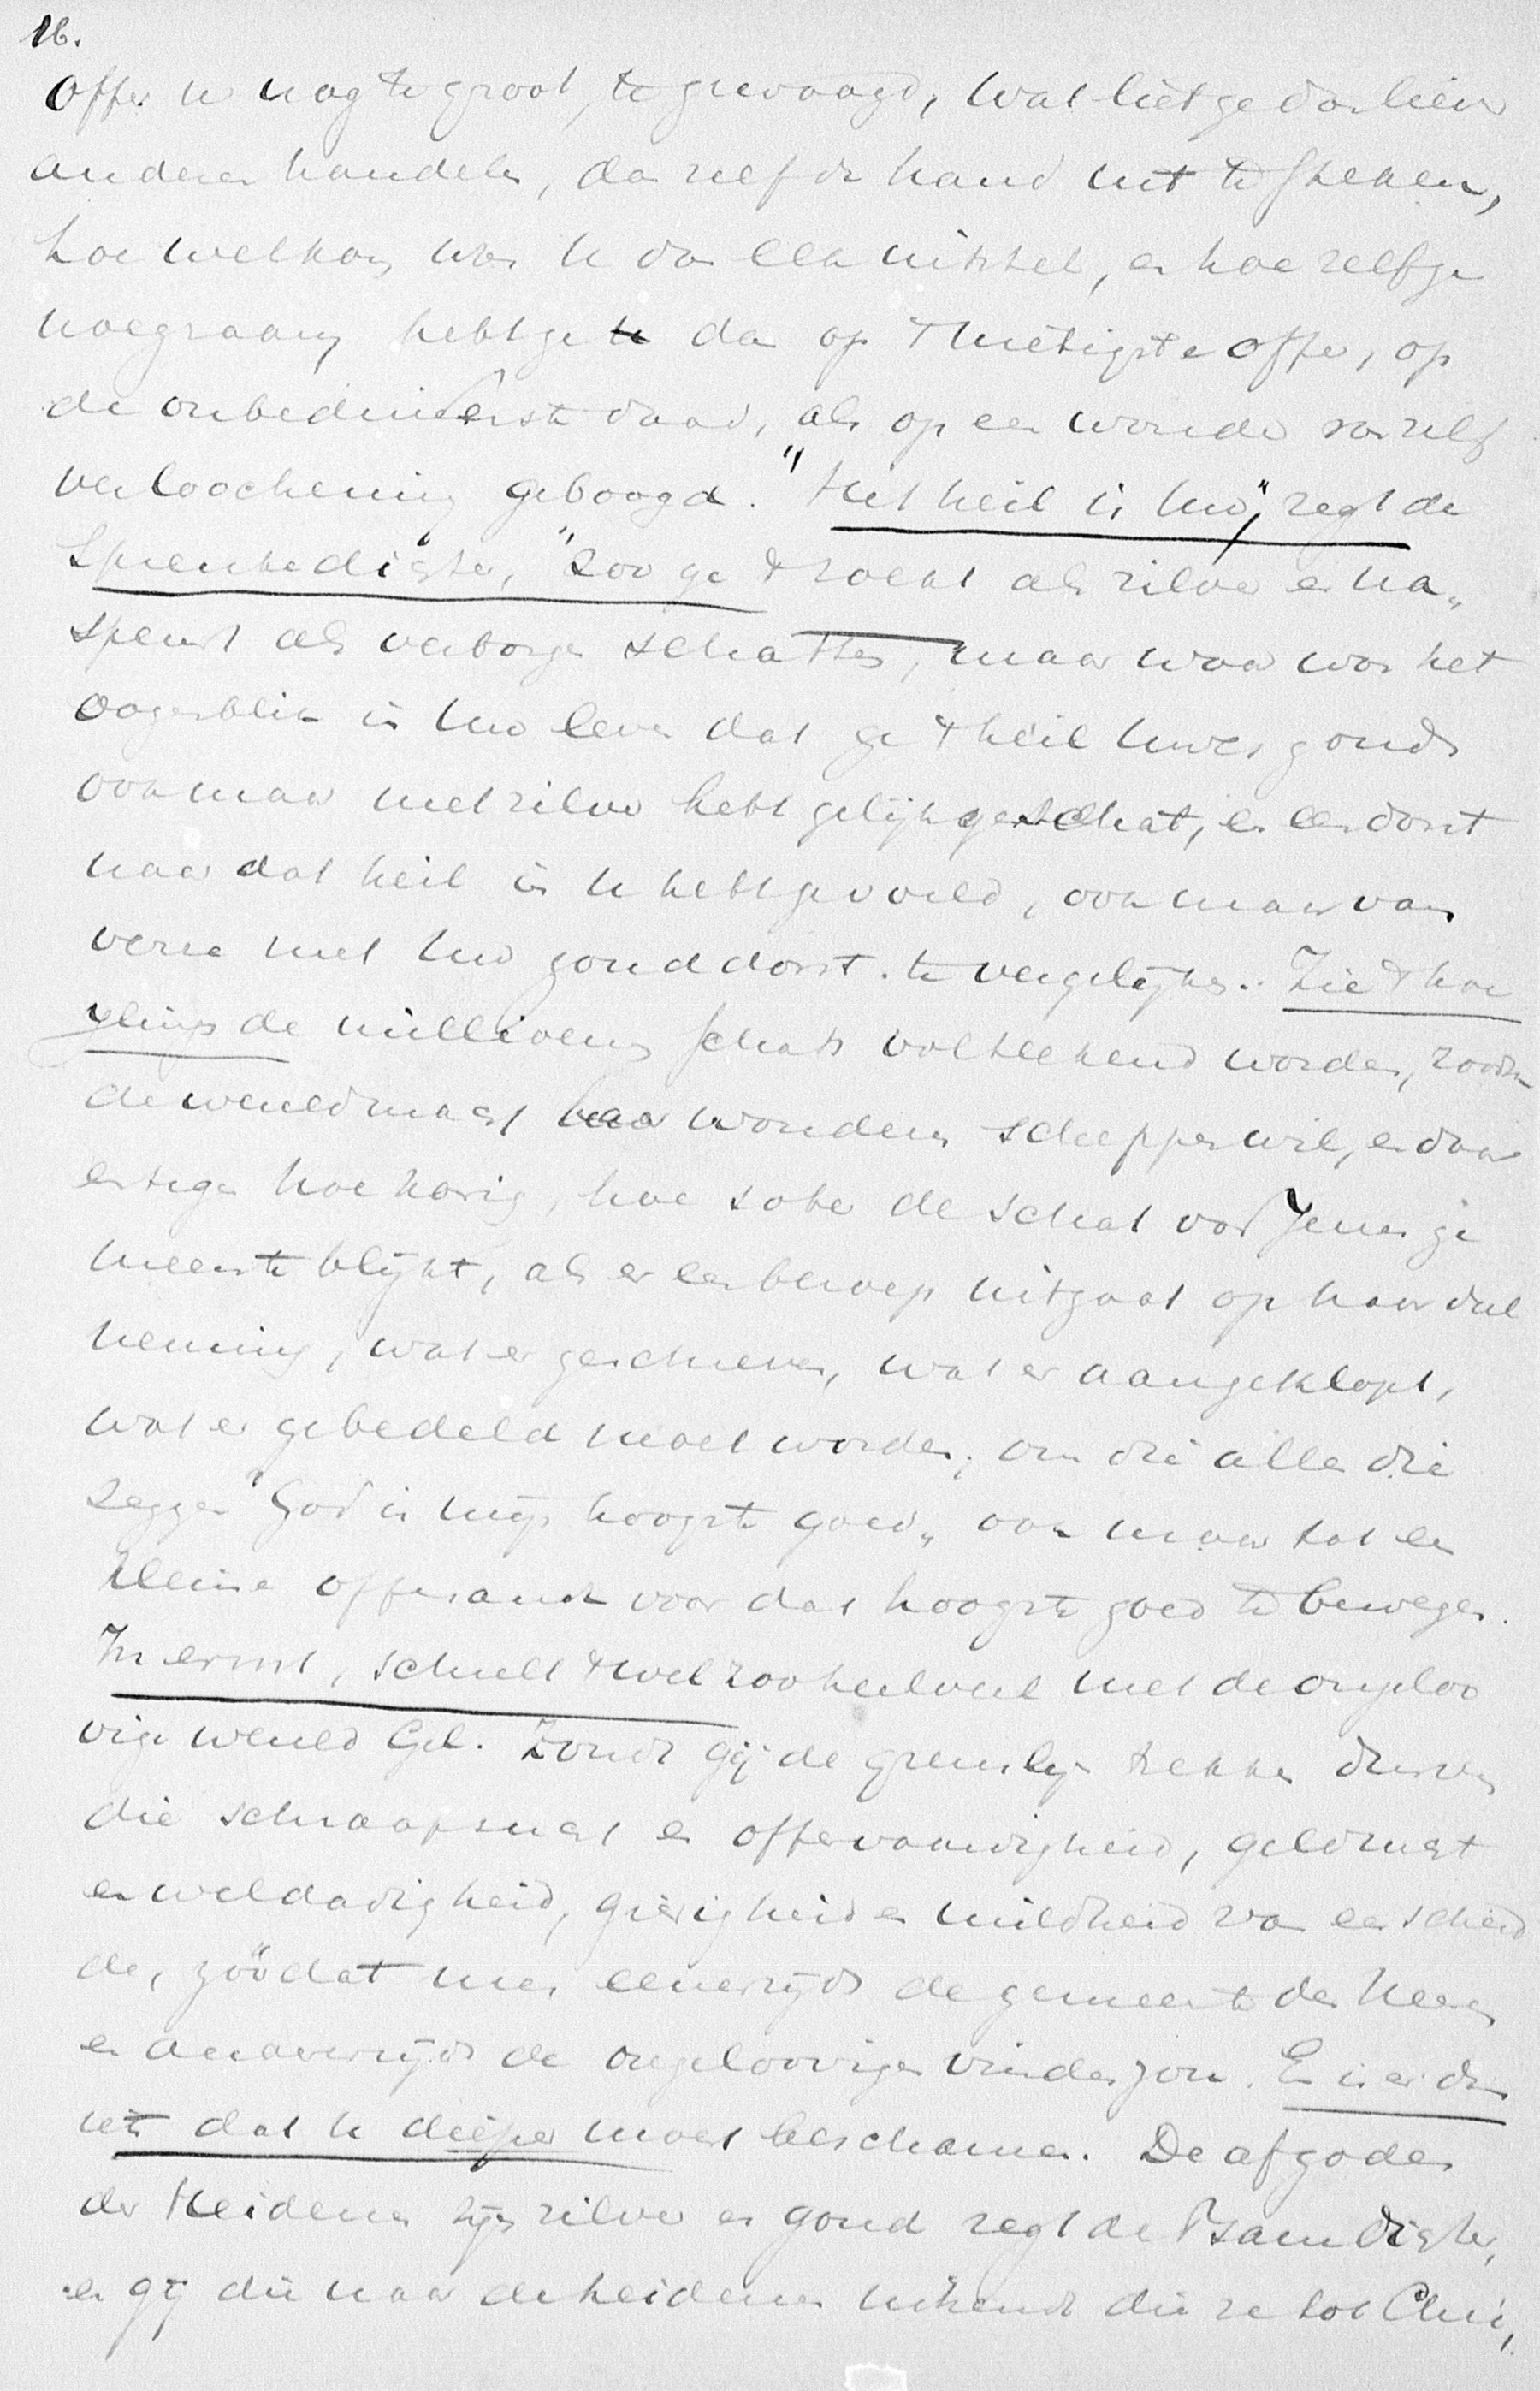 16.
Offer u nog te groot, te gewaagd, wat liet ge dan liever
anderen handelen, dan zelf de hand uit te steken,
hoe welkom was u dan een uitstel, en hoe zelfge
noegzaam hebt ge dan op 't nietigste offer, op
de onbeduidenste daad, als op een wonder van zelf
verloochening geboogd. "Het heil is uw," zegt de
Spreukedichter, "zoo ge 't zoekt als zilver en na„
speurt als verborgen schatten, maar waar was het
oogenblik in uw leven dat ge 't heil uwes gouds
ook maar met zilver hebt gelijk geschat, en een dorst
naar dat heil in u hebt gevoeld, ook maar van
verre met uw gouddorst te vergelijken. Ziet hoe
ylings de millioenen schats volteekend worden, zoodra
de wereldmagt haar wonderen scheppen wil, en daar
entegen hoe karig, hoe sober de schat van Jezus ge
meente blijkt, als er een beroep uitgaat op haar deel
neming, wat er geschreven, wat er aangeklopt,
wat er gebedeld moet worden, om die allen die
zeggen "God is mijn hoogste goed„ ook maar tot een
kleine offerande voor dat hoogste goed te bewegen.
In ernst, scheelt 't wel zoo heel veel met de ongeloo
vige wereld Gel. Zoudt gij de grenslijn trekken durven
die schraapzucht en offervaardigheid, geldzucht
en weldadigheid, gierigheid en mildheid van een scheid
de, zóódat men eenerzijds de gemeente des Heeren
en anderzijds de ongeloovigen vinden zou. En is er dan
niets dat u dieper moet beschamen. De afgoden
der Heidenen zijn zilver en goud zegt de Psalmdichter,
en gij die naar de heidenen uitzendt die ze tot Chris,